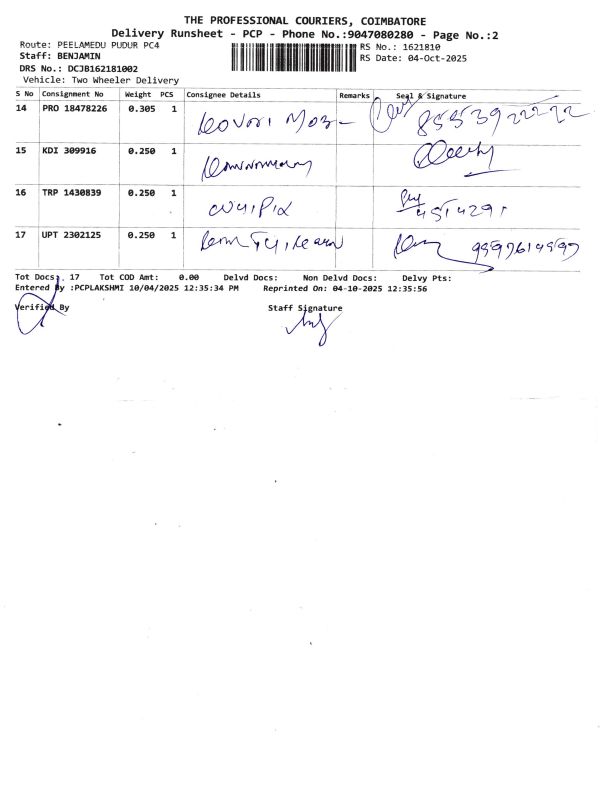 THE PROFESSIONAL COURIERS, COIMBATORE
Delivery Runsheet - PCP - Phone No.:9047080280 - Page No.:2
Route: PEELAMEDU PUDUR PC4
RS No.: 1621810
Staff: BENJAMIN
RS Date: 04-Oct-2025
DRS No.: DCJB162181002
Vehicle: Two Wheeler Delivery
S No Consignment No Weight PCS Consignee Details Remarks Seal & Signature
14 PRO 18478226 0.305 1
15 KDI 309916 0.250 1
16 TRP 1430839 0.250 1
17 UPT 2302125 0.250 1
Tot Docs. 17 Tot COD Amt: 0.00 Delvd Docs: Non Delvd Docs: Delvy Pts:
Entered By :PCPLAKSHMI 10/04/2025 12:35:34 PM Reprinted On: 04-10-2025 12:35:56
Verified By Staff Signature